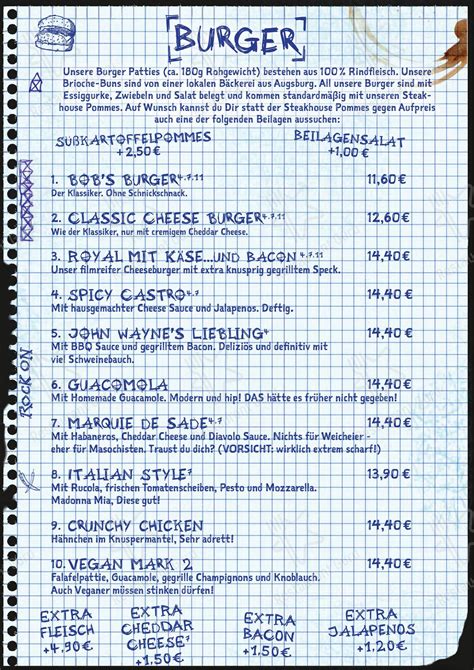 BURGER
Unsere Burger Patties (ca. 180g Rohgewicht) bestehen aus 100% Rindfleisch. Unsere
Brioche-Buns sind von einer lokalen Bäckerei aus Augsburg. All unsere Burger sind mit
Essiggurke, Zwiebeln und Salat belegt und kommen standardmäßig mit unseren Steak-
house Pommes. Auf Wunsch kannst du Dir statt der Steakhouse Pommes gegen Aufpreis
auch eine der folgenden Beilagen aussuchen:
SÜßKARTOFFELPOMMES BEILAGENSALAT
+2,50€ +1,00€
1. BOB'S BURGER4.7.11 11,60€
Der Klassiker. Ohne Schnickschnack.
2. CLASSIC CHEESE BURGER4.7.11 12,60€
Wie der Klassiker, nur mit cremigem Cheddar Cheese.
3. ROYAL MIT KÄSE...UND BACON4.7.11 14,40€
Unser filmreifer Cheeseburger mit extra knusprig gegrilltem Speck.
4. SPICY CASTRO4.7 14,40€
Mit hausgemachter Cheese Sauce und Jalapenos. Deftig.
5. JOHN WAYNE'S LIEBLING4 14,40€
Mit BBQ Sauce und gegrilltem Bacon. Deliziös und definitiv mit
viel Schweinebauch.
ROCK ON
6. GUACOMOLA 14,40€
Mit Homemade Guacamole. Modern und hip! DAS hätte es früher nicht gegeben!
7. MARQUIE DE SADE4.7 14,40€
Mit Habaneros, Cheddar Cheese und Diavolo Sauce. Nichts für Weicheier -
eher für Masochisten. Traust du dich? (VORSICHT: wirklich extrem scharf!)
8. ITALIAN STYLE7 13,90€
Mit Rucola, frischen Tomatenscheiben, Pesto und Mozzarella.
Madonna Mia, Diese gut!
9. CRUNCHY CHICKEN 14,40€
Hähnchen im Knuspermantel, Sehr adrett!
10. VEGAN MARK 2 14,40€
Falafelpattie, Guacamole, gegrille Champignons und Knoblauch.
Auch Veganer müssen stinken dürfen!
EXTRA FLEISCH +4,90€
EXTRA CHEDDAR CHEESE7 +1,50€
EXTRA BACON +1,50€
EXTRA JALAPENOS +1.20€